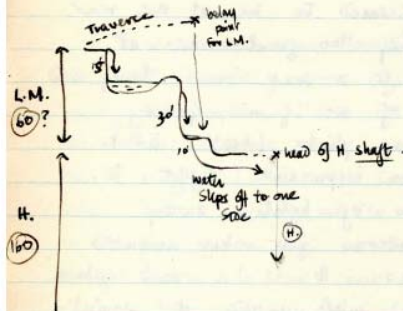 Traverse
belay
point
for L.M.
15'
L.M.
60?
30'
10'
head of H shaft.
water
slips off to one
side
H.
160
H.